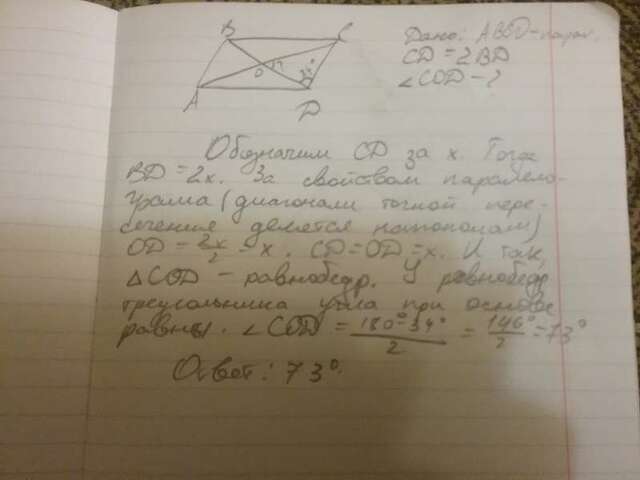 B C
Дано: ABCD - парал.
CD = 2BD
∠COD - ?
O ?
A D
Обозначим CD за x. Тогда
BD = 2x. За свойством параллело-
грама (диагонали точкой пере-
сечения делятся пополам)
OD = 2x/2 = x. CD = OD = x. И так,
△COD - равнобедр. У равнобедр
треугольника угла при основе
равны. ∠COD = 180°-34°/2 = 146°/2 = 73°
Ответ: 73°.